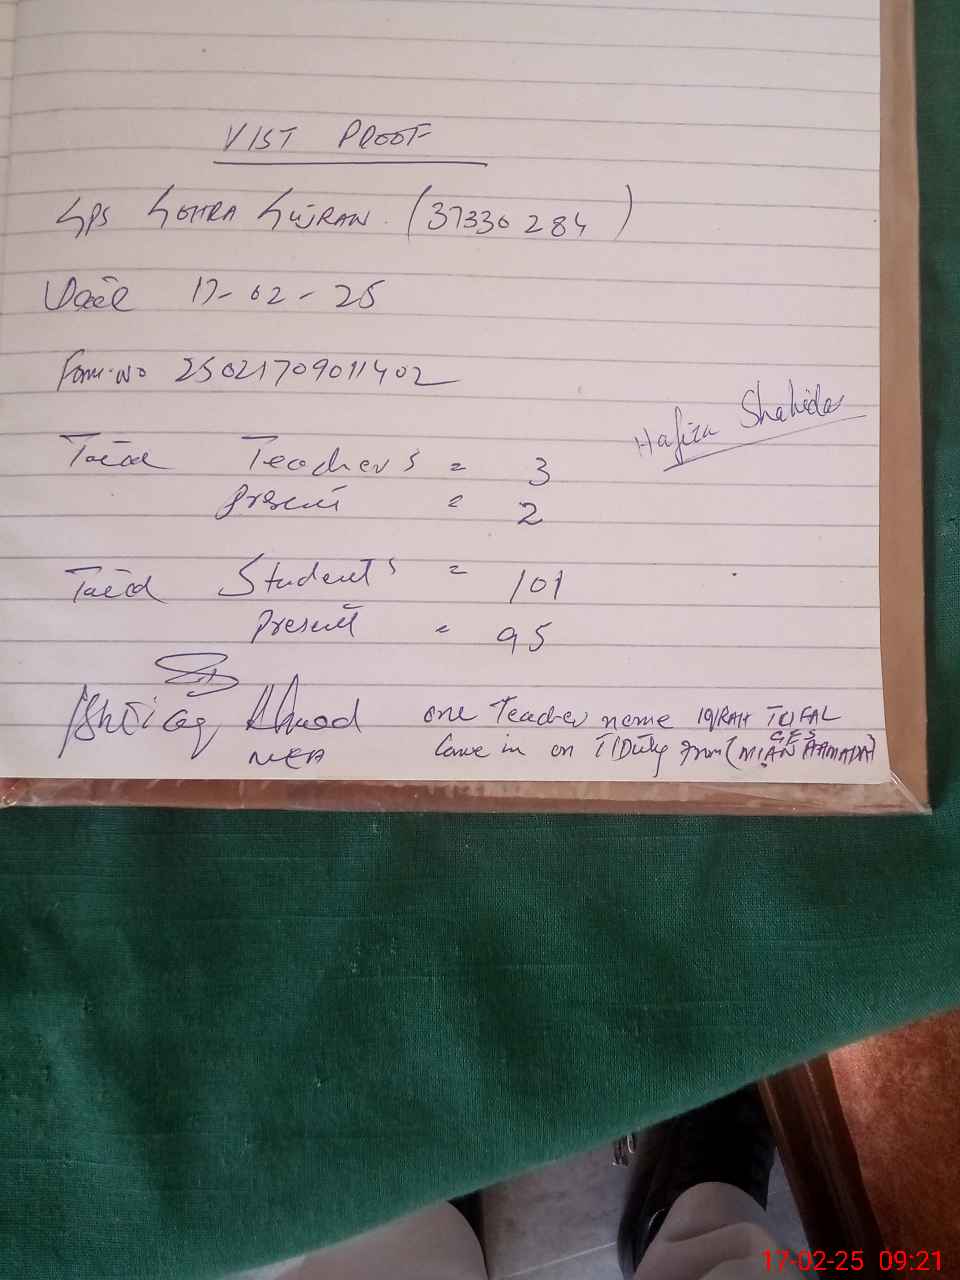 VIST PROOF
GPS GOHRA GUJRAN. (37330284)
Date 17-02-25
Form.No 25021709011402
Hafiza Shahida
Total Teachers = 3
Present = 2
Total Students = 101
Present = 95
Ishtiaq Ahmad
MEA
one Teacher name IQRAH TUFAL
Came in on T/Duty from (GES MIAN AHMADA)
17-02-25 09:21